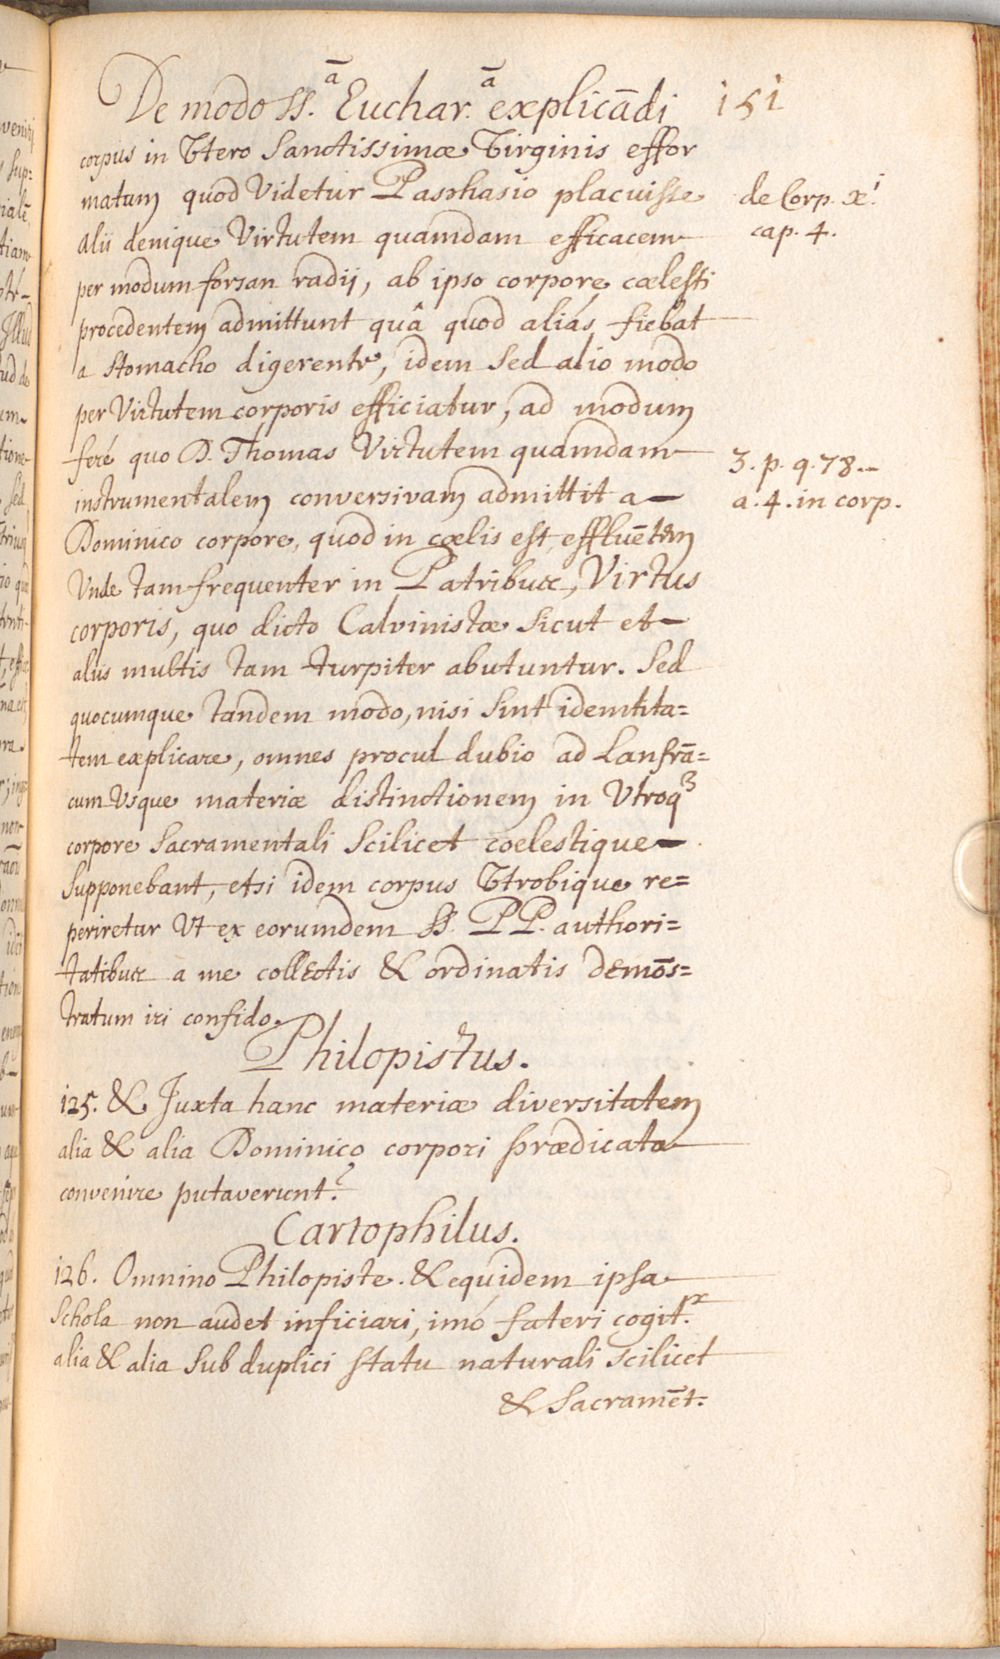 De modo SS.ā Euchar.ā explicādi 151
corpus in Utero Sanctissimæ Virginis effor
matum quod Videtur Pasphasio placuisse
de Corp. Xi.
cap. 4.
Alii denique Virtutem quamdam efficacem
per modum forsan radij, ab ipso corpore cælesti
procedentem admittunt quâ quod aliás fiebat
a stomacho digerente, idem Sed alio modo
per Virtutem corporis efficiatur, ad modum
feré quo D. Thomas Virtutem quamdam
3. p. q. 78.
a. 4. in corp.
instrumentalem conversivam admittit a
Dominico corpore, quod in cœlis est, effluētem
Unde tam frequenter in Patribus, Virtus
corporis, quo dicto Calvinistæ Sicut et
aliis multis tam turpiter abutuntur. Sed
quocumque tandem modo, nisi Sint idemtita=
tem explicare, omnes procul dubio ad Lanfrā=
cum Usque materiæ distinctionem in Utroq3
corpore Sacramentali Scilicet coelestique
Supponebant, etsi idem corpus Utrobique re=
periretur Ut ex eorumdem SS. PP. authori=
tatibus a me collectis & ordinatis demōs=
tratum iri confido.
Philopistus.
125. & Juxta hanc materiæ diversitatem
alia & alia Dominico corpori prædicata
convenire putaverunt?
Cartophilus.
126. Omnino Philopiste. & equidem ipsa
Schola non audet inficiari, imó fateri cogit.r
alia & alia Sub duplici statu naturali Scilicet
& Sacramēt.